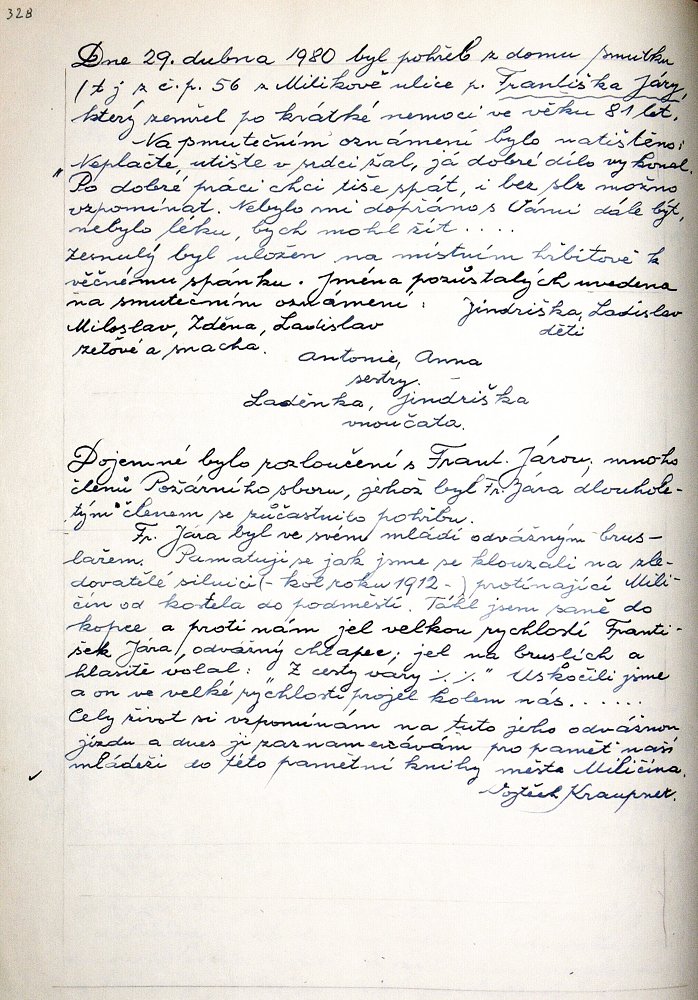 328
Dne 29. dubna 1980 byl pohřeb z domu smutku
/t j z č.p. 56 z Milikově ulice p. Františka Járy,
který zemřel po krátké nemoci ve věku 81 let.
Na smutečním oznámení bylo natištěno:
"Neplačte, utište v srdci žal, já dobré dílo vykonal.
Po dobré práci chci tiše spát, i bez slz možno
vzpomínat. Nebylo mi dopřáno s Vámi dále být,
nebylo léku, bych mohl žít . . . .
Zesnulý byl uložen na místním hřbitově k
věčnému spánku. Jména pozůstalých uvedena
na smutečním oznámení : Jindřiška, Ladislav
Miloslav, Zděna, Ladislav děti
zeťové a snacha.
Antonie, Anna
sestry.
Laděnka, Jindřiška
vnoučata.
Dojemné bylo rozloučení s Frant. Járou, mnoho
členů Požárního sboru, jehož byl Fr. Jára dlouhole-
tým členem se zúčastnilo pohřbu.
Fr. Jára byl ve svém mládí odvážným brus-
lařem. Pamatuji se jak jsme se klouzali na zle-
dovatělé silnici (- kol roku 1912 -) protínající Mili-
čín od kostela do podměstí. Táhl jsem saně do
kopce a proti nám jel velkou rychlostí Franti-
šek Jára, odvážný chlapec; jel na bruslích a
hlasitě volal: "Z cesty vary ./. ./." Uskočili jsme
a on ve velké rychlosti projel kolem nás. . . . . . .
Celý život si vzpomínám na tuto jeho odvážnou
jízdu a dnes ji zaznamenávám pro paměť naší
mládeži do této pamětní knihy města Miličína.
Vojtěch Kraupner.